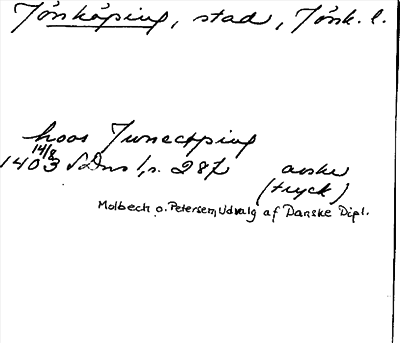 Jönköping, stad, Jönk. l.
hoos Junecping
14/8
1403 SDns 1, s. 287 avskr
(tryck)
Molbech o. Petersen, Udvalg af Danske Dipl.